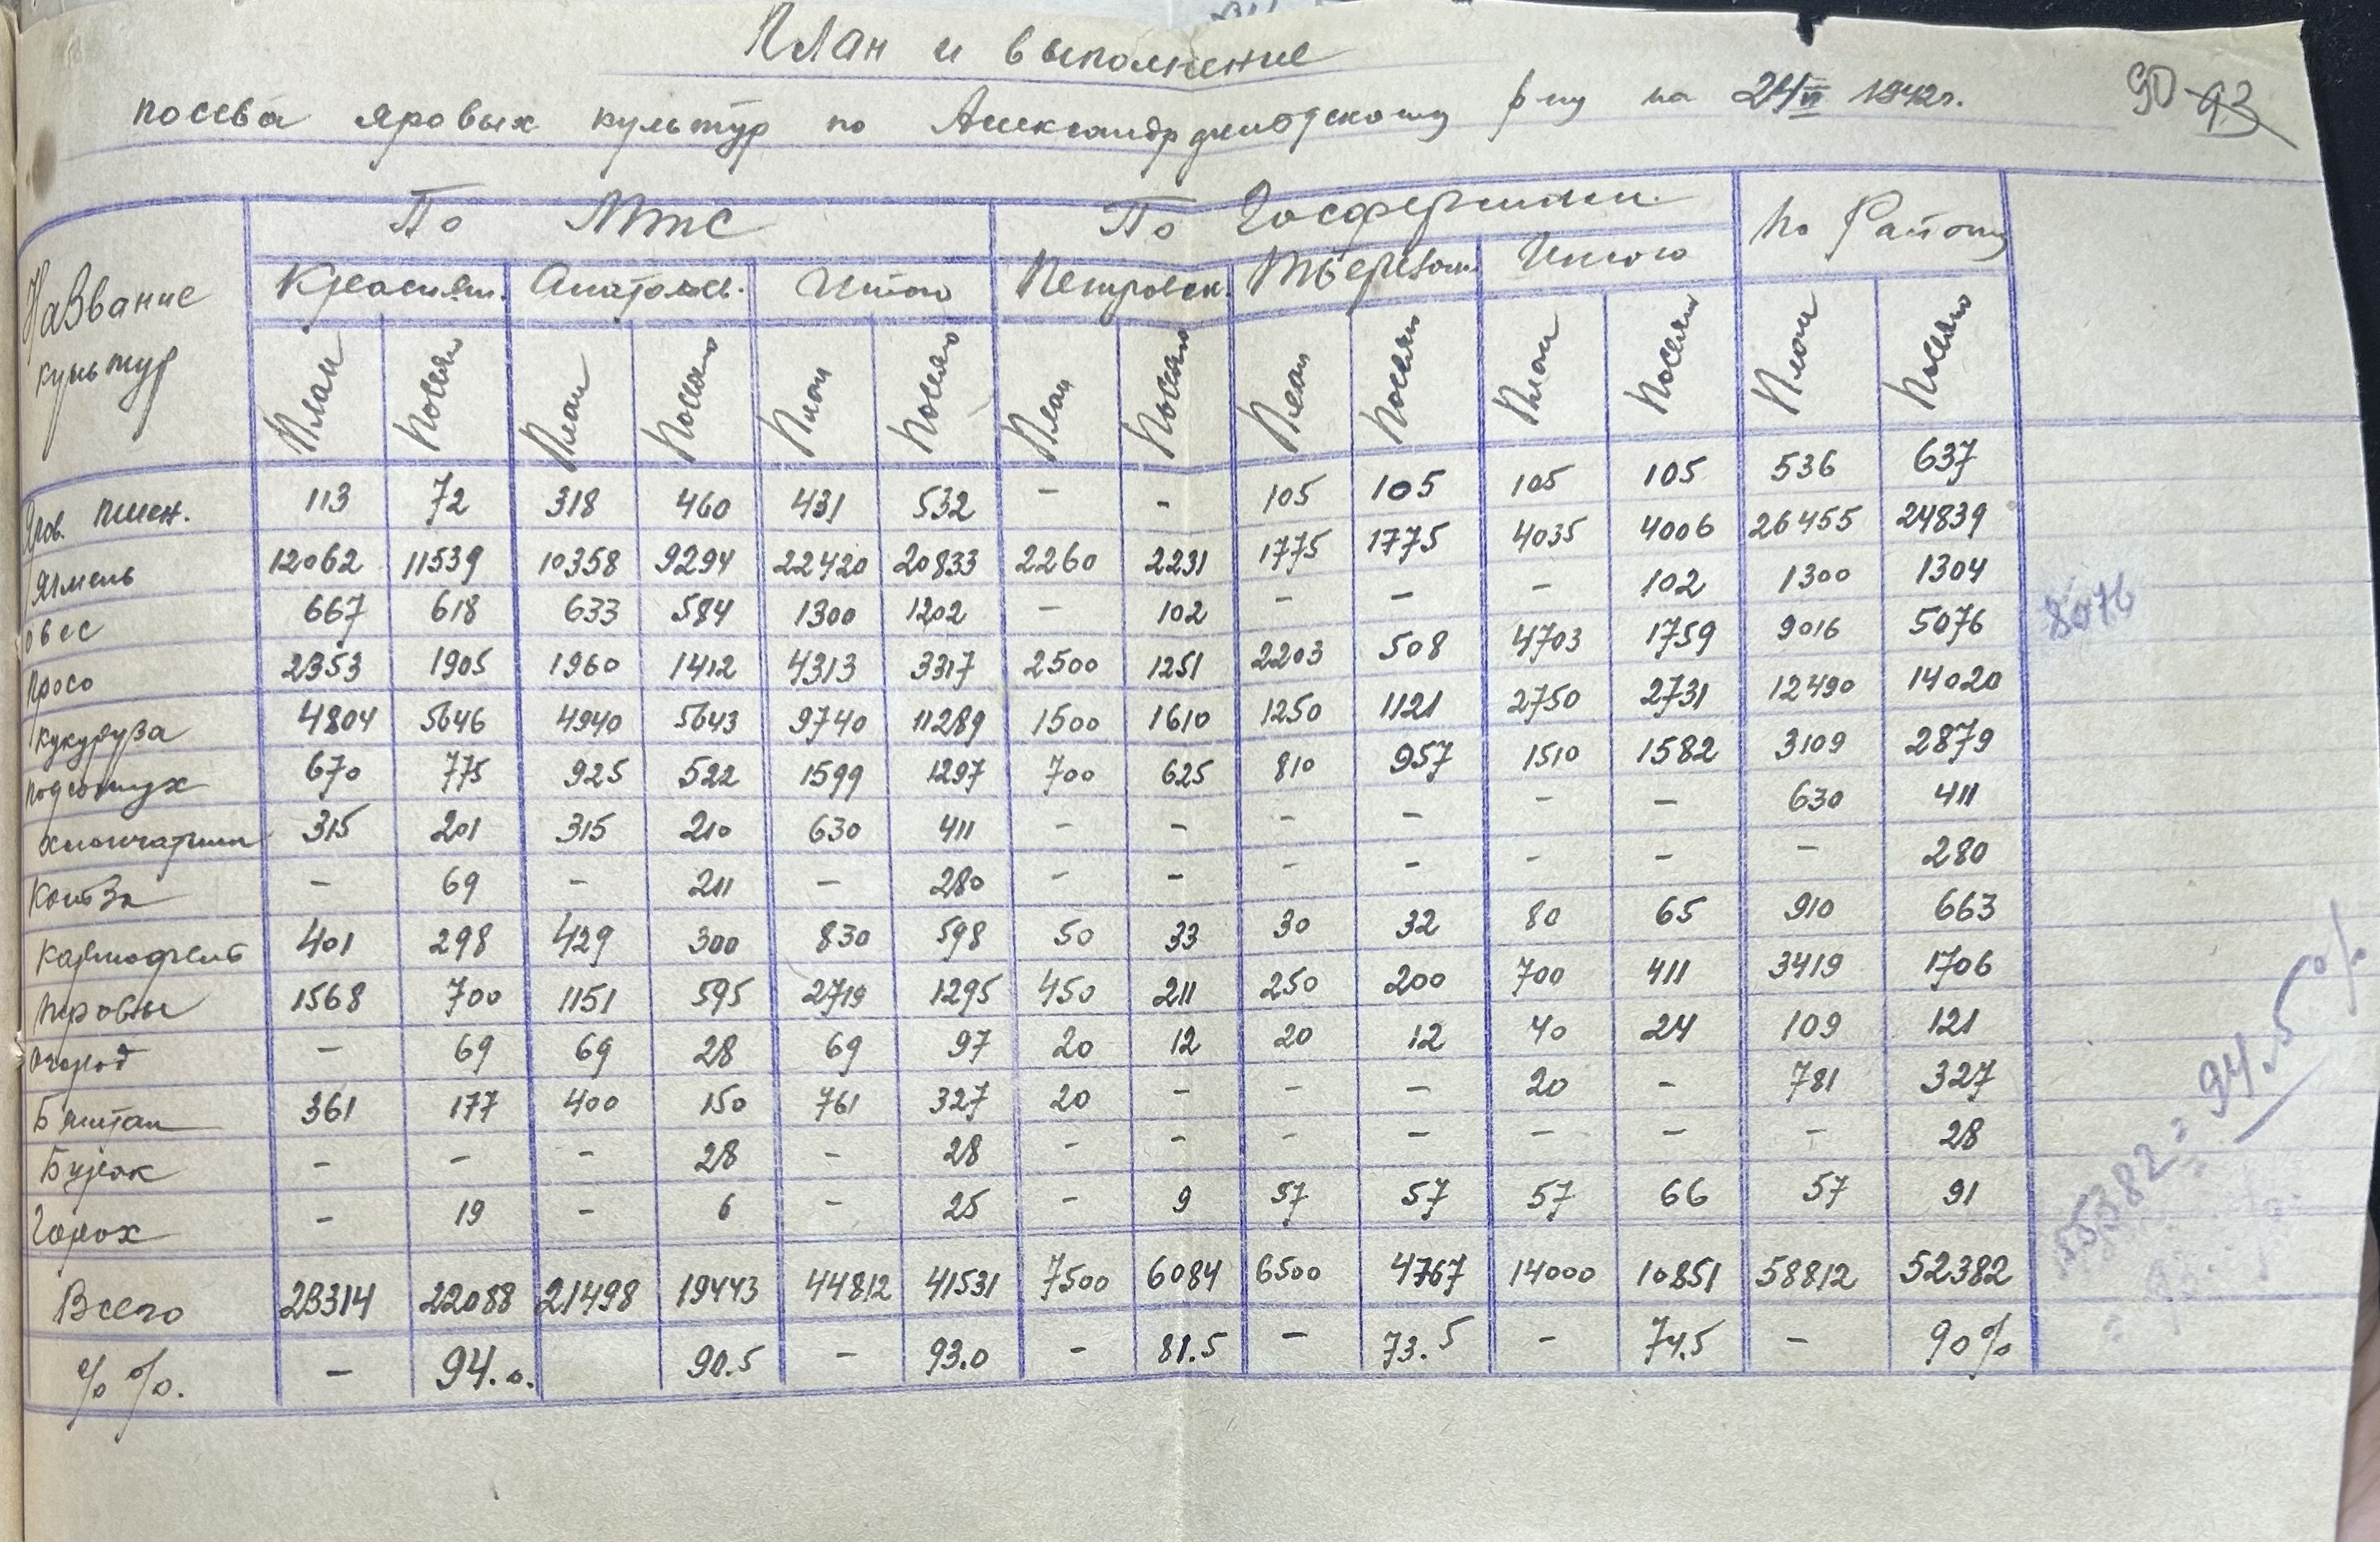 План и выполнение
посева яровых культур по Александрфельдскому р-ну на 24 VI 1942г.
90 93
Название культур | По МТС | По Госфермам | По Району
Красиян. | Анатольев. | Итого | Петровск. | Итого
План | Посеяно | План | Посеяно | План | Посеяно | План | Посеяно | План | Посеяно | План | Посеяно | План | Посеяно
Яров. пшен. | 113 | 72 | 318 | 460 | 431 | 532 | - | - | 105 | 105 | 105 | 105 | 536 | 637
Ячмень | 12062 | 11539 | 10358 | 9294 | 22420 | 20833 | 2260 | 2231 | 1775 | 1775 | 4035 | 4006 | 26455 | 24839
Овес | 667 | 618 | 633 | 584 | 1300 | 1202 | - | 102 | - | - | - | 102 | 1300 | 1304
Просо | 2353 | 1905 | 1960 | 1412 | 4313 | 3317 | 2500 | 1251 | 2203 | 508 | 4703 | 1759 | 9016 | 5076
8076
Кукуруза | 4804 | 5646 | 4940 | 5643 | 9740 | 11289 | 1500 | 1610 | 1250 | 1121 | 2750 | 2731 | 12490 | 14020
Подсолнух | 670 | 775 | 925 | 522 | 1599 | 1297 | 700 | 625 | 810 | 957 | 1510 | 1582 | 3109 | 2879
Хлопчатник | 315 | 201 | 315 | 210 | 630 | 411 | - | - | - | - | - | - | 630 | 411
Кользa | - | 69 | - | 211 | - | 280 | - | - | - | - | - | - | - | 280
Картофель | 401 | 298 | 429 | 300 | 830 | 598 | 50 | 33 | 30 | 32 | 80 | 65 | 910 | 663
1568 | 700 | 1151 | 595 | 2719 | 1295 | 450 | 211 | 250 | 200 | 700 | 411 | 3419 | 1706
Огород | - | 69 | 69 | 28 | 69 | 97 | 20 | 12 | 20 | 12 | 40 | 24 | 109 | 121
Баштан | 361 | 177 | 400 | 150 | 761 | 327 | 20 | - | - | - | 20 | - | 781 | 327
Бурак | - | - | - | 28 | - | 28 | - | - | - | - | - | - | - | 28
Горох | - | 19 | - | 6 | - | 25 | - | 9 | 57 | 57 | 57 | 66 | 57 | 91
Всего | 23314 | 22088 | 21498 | 19443 | 44812 | 41531 | 7500 | 6084 | 6500 | 4767 | 14000 | 10851 | 58812 | 52382
% %. | - | 94.0. | | 90.5 | - | 93.0 | - | 81.5 | - | 73.5 | - | 74.5 | - | 90%
55382 = 94.5%